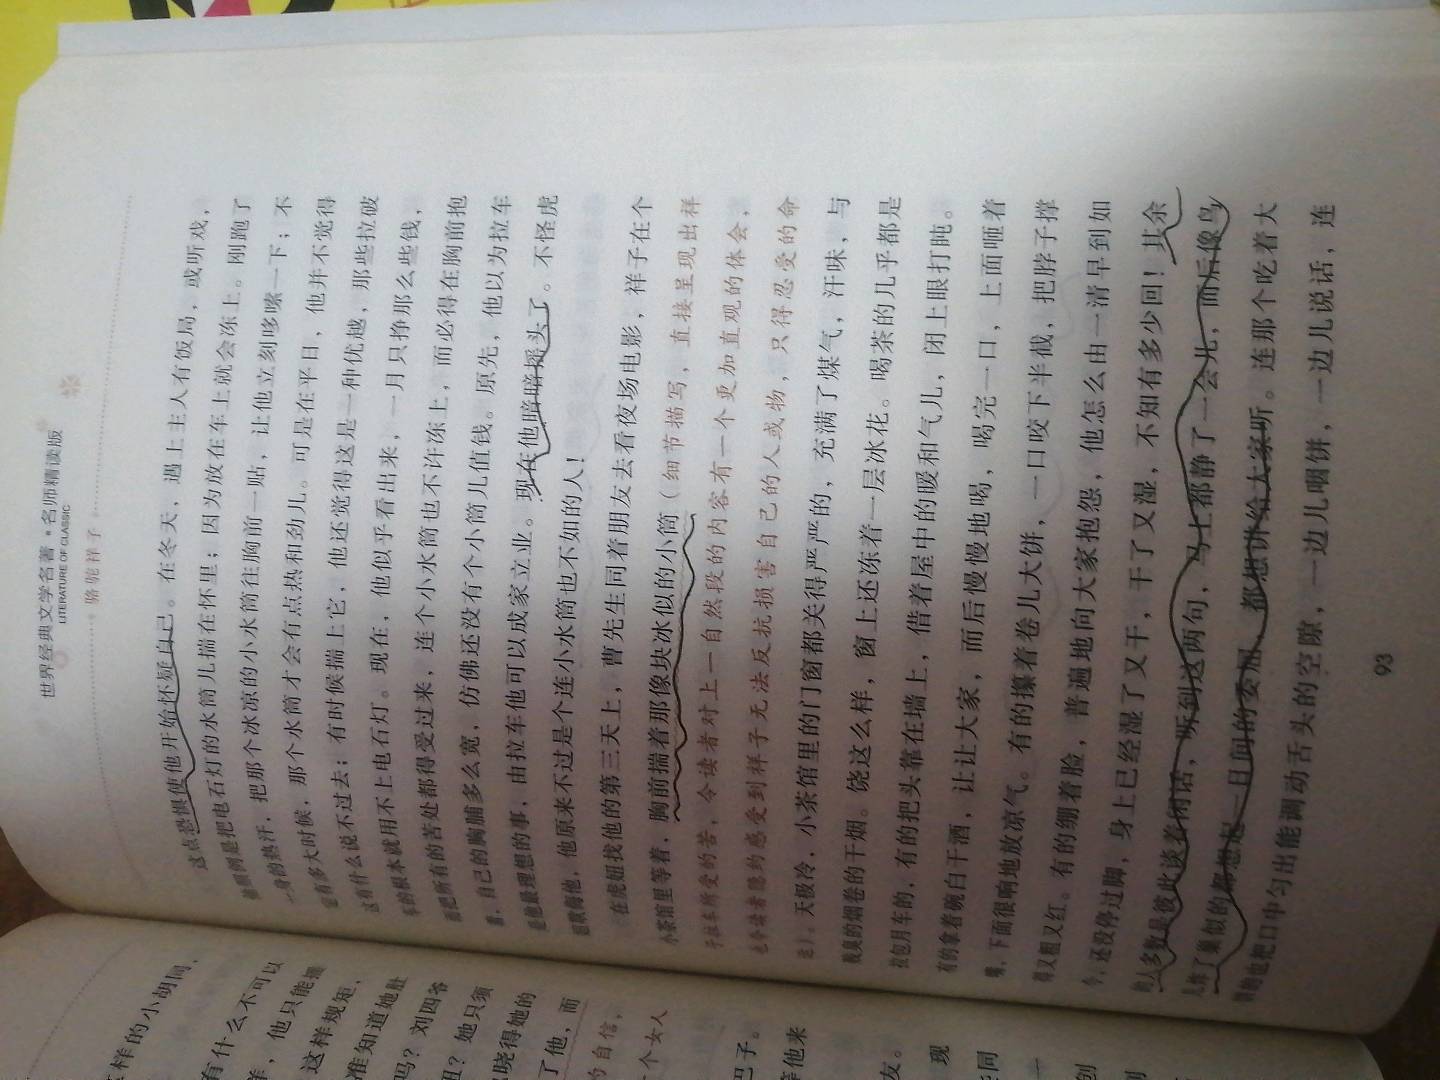 世界经典文学名著·名师精读版
LITERATURE OF CLASSIC
骆驼祥子
这点恐惧使他开始怀疑自己。在冬天，遇上主人有饭局，或听戏，
他照例是把电石灯的水筒儿揣在怀里；因为放在车上就会冻上。刚跑了
一身的热汗，把那个冰凉的小水筒往胸前一贴，让他立刻哆嗦一下；不
定有多大时候，那个水筒才会有点热和劲儿。可是在平日，他并不觉得
这有什么说不过去；有时候揣上它，他还觉得这是一种优越，那些拉破
车的根本就用不上电石灯。现在，他似乎看出来，一月只挣那么些钱，
而把所有的苦处都得受过来，连个小水筒也不许冻上，而必得在胸前抱
着，自己的胸脯多么宽，仿佛还没有个小筒儿值钱。原先，他以为拉车
是他最理想的事，由拉车他可以成家立业。现在他暗暗摇头了。不怪虎
妞欺侮他，他原来不过是个连小水筒也不如的人！
在虎妞找他的第三天上，曹先生同着朋友去看夜场电影，祥子在个
小茶馆里等着，胸前揣着那像块冰似的小筒（细节描写，直接呈现出祥
子拉车所受的苦，令读者对上一自然段的内容有一个更加直观的体会，
也令读者隐约感受到祥子无法反抗损害自己的人或物，只得忍受的命
运）。天极冷，小茶馆里的门窗都关得严严的，充满了煤气，汗味，与
贱臭的烟卷的干烟。饶这么样，窗上还冻着一层冰花。喝茶的几乎都是
拉包月车的，有的把头靠在墙上，借着屋中的暖和气儿，闭上眼打盹。
有的拿着碗白干酒，让让大家，而后慢慢地喝，喝完一口，上面咂着
嘴，下面很响地放凉气。有的攥着卷儿大饼，一口咬下半截，把脖子撑
得又粗又红。有的绷着脸，普遍地向大家抱怨，他怎么由一清早到如
今，还没停过脚，身上已经湿了又干，干了又湿，不知有多少回！其余
的人多数是彼此谈着闲话，听到这两句，马上都静了一会儿，而后像鸟
儿炸了巢似的都想起一日间的委屈，都想讲给大家听。连那个吃着大
饼的也把口中匀出能调动舌头的空隙，一边儿咽饼，一边儿说话，连
93
样的小胡同，
有什么不可以
，他只能撒
这样规矩，
准知道她肚
吗？刘四爷
丑？她只须
晓得她的
了他，而
的自信，
个女人
巴子。
等他来
友。
现
同
一
创